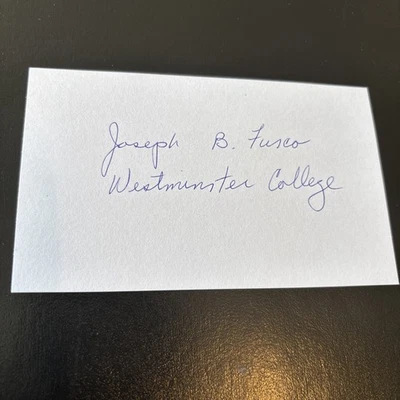 Joseph B. Fusco
Westminster College